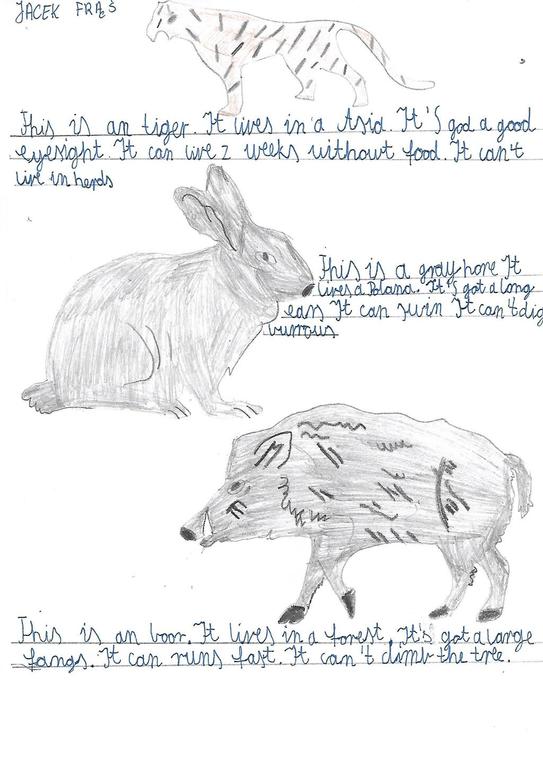 JACEK FRĄŚ
This is an tiger. It lives in a Asia. It's god a good
eyesight. It can live 2 weeks without food. It can't
live in herds
This is a gray hare It
lives a Poland. It's got a long
ears It can swim It can't dig
burrous
This is an boor. It lives in a forest. It's got a large
fangs. It can runs fast. It can't climb the tree.